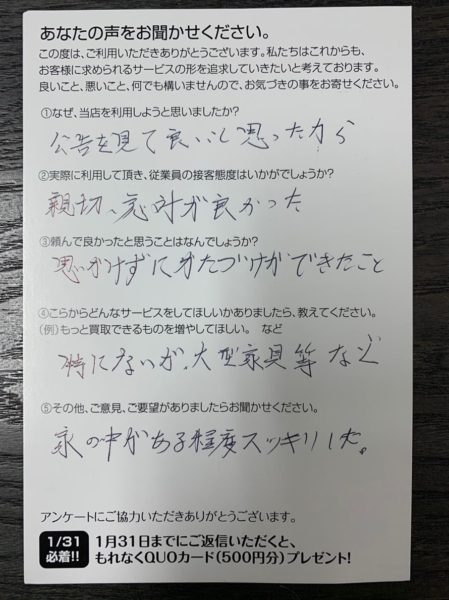 あなたの声をお聞かせください。
この度は、ご利用いただきありがとうございます。私たちはこれからも、
お客様に求められるサービスの形を追求していきたいと考えております。
良いこと、悪いこと、何でも構いませんので、お気づきの事をお寄せください。
①なぜ、当店を利用しようと思いましたか?
公告を見て良いと思ったから
②実際に利用して頂き、従業員の接客態度はいかがでしょうか?
親切、応対が良かった
③頼んで良かったと思うことはなんでしょうか?
思いがけずにかたづけができたこと
④こらからどんなサービスをしてほしいかありましたら、教えてください。
(例)もっと買取できるものを増やしてほしい。 など
特にないが、大型家具等など
⑤その他、ご意見、ご要望がありましたらお聞かせください。
家の中がある程度スッキリした。
アンケートにご協力いただきありがとうございます。
1/31
必着!!
1月31日までにご返信いただくと、
もれなくQUOカード(500円分)プレゼント!